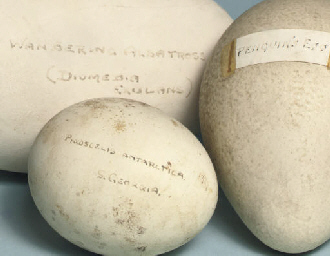 WANDERING ALBATROSS
(DIOMEDIA
EXULANS)
PENGUIN'S EGG
PYGOSCELIS ANTARCTICA
S. GEORGIA.